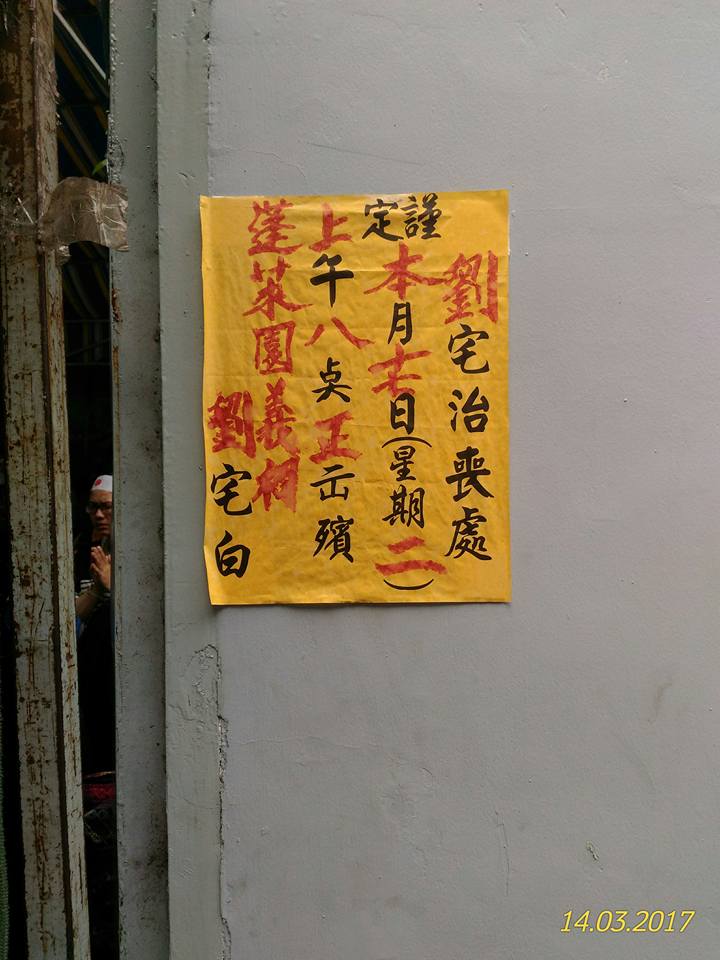 劉宅治喪處
謹定本月十七日(星期二)
上午八奌正出殯
蓬萊園義祠
劉宅白
14.03.2017